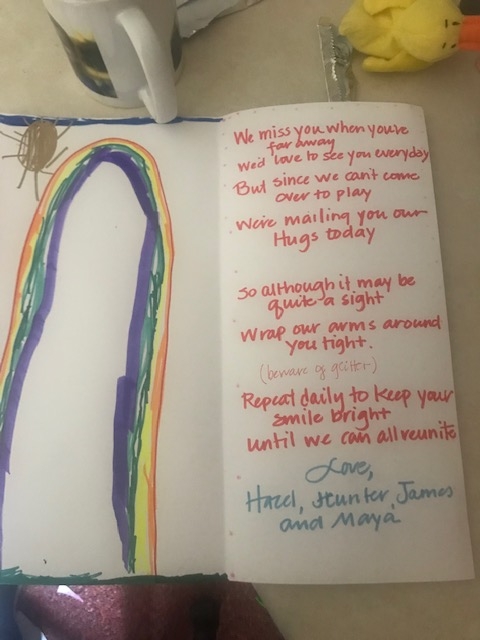 We miss you when you're
far away
we'd love to see you everyday
But since we can't come
over to play
We're mailing you our
Hugs today
So although it may be
quite a sight
Wrap our arms around
you tight.
(beware of glitter)
Repeat daily to keep your
smile bright
until we can all reunite
Love,
Hazel, Hunter, James
and Maya